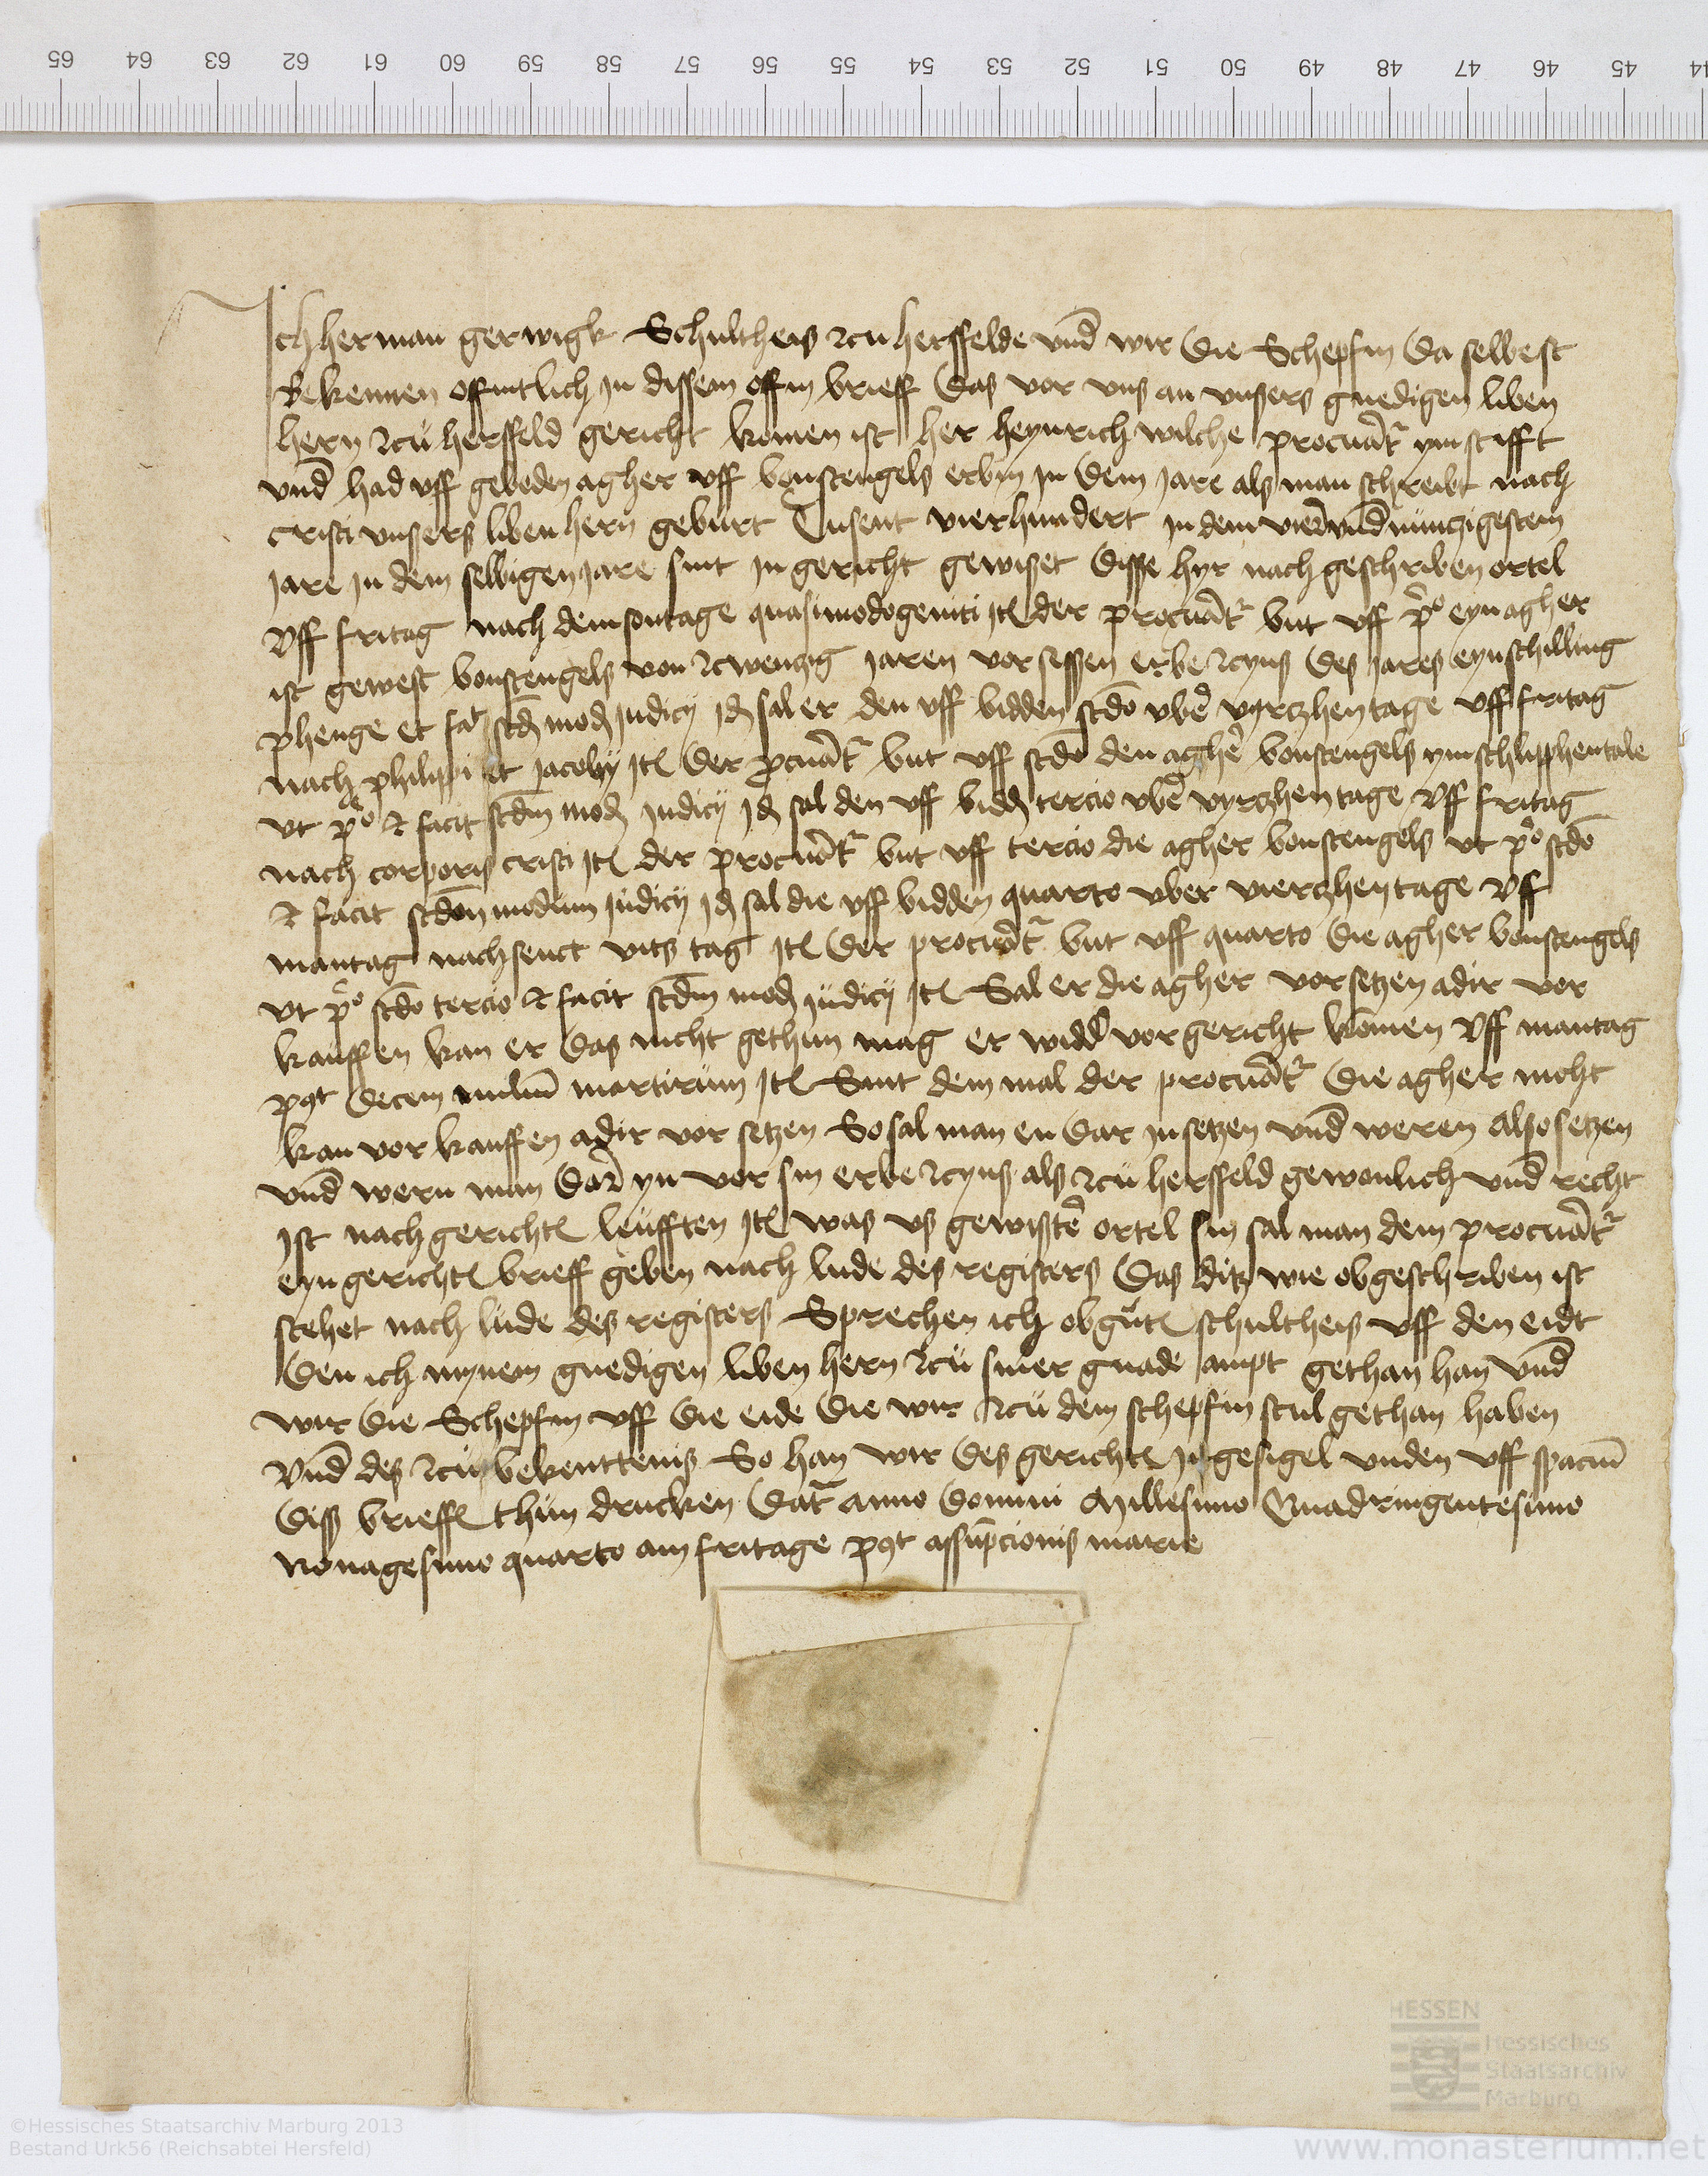 65 64 63 62 61 60 59 58 57 56 55 54 53 52 51 50 49 48 47 46 45 44
Ich herman gerwigk Schultheis zcu hersffelde vnd wir die Schepfin da selbest
Bekennen offintlich in dissem offin brieff das vor vns an vnsers gnedigen liben
hern zcu hersffeld gericht komen ist her heynrich wilche procuratr ym stifft
vnd had vff geboden agher vff bonstengels erbin in dem jare als man schreibt nach
cristi vnsers liben hern geburt Tusent vierhundert in dem vier vnd nunczigestem
jare in dem selbigen jare sint in gericht gewiset disse hyr nach geschriben ortel
Vff fritag nach dem sontage quasimodogeniti Jt der procuratr but vff po eyn agher
ist gewest bonstengels von zcwenczig jaren vorsessen erbe zcyns des jares eyn schilling
phenge et fat scd mod judicij Jd sal er den vff bidden scdo vber vyrczhen tage vff fritag
nach philippi et jacoby Jt der pcuratr but vff scdo den agher bonstengels ym schlipphentale
vt po et facit scdm mod judicij Jd sal den vff bidd tercio vber vyrczhen tage Vff fritag
nach corporis cristi Jt der procuratr but vff tercio die agher bonstengels vt po scdo
et facit scdom modum judicij Jd sal die vff bidden quarto vber vierczhen tage Vff
mantag nach senct vits tag Jt der procuratr but vff quarto die agher bonstengels
vt po scdo tercio et facit scdm mod judicij Jt Sal er die agher vorsetzen adir vor
kauffen kan er das nicht gethun mag er widd vor gericht komen Vff mantag
post decem milium martirum Jt Sint dem mal der procuratr die agher nicht
kan vor kauffen adir vor setzen So sal man en dar in setzen vnd weren Also setzen
vnd wern man dar yn vor sin erbe zcyns als zcu hersffeld gewonlich vnd recht
Ist nach gericht leufften Jt was vs gewiste ortel sin sal man dem procuratr
eyn gericht brieff geben nach lude des registers Das ditz wie obgeschriben ist
stehet nach lude des registers Sprechen ich obgnt schultheis vff den eidt
Den ich mynem gnedigen liben hern zcu siner gnade ampt gethan han vnd
wir die Schepfin vff die eide die wir zcu dem schepfin stul gethan haben
Vnd des zcu bekenttenis So han wir des gericht ingesigel vnden vff spacium
diss brieff thun drucken Datr anno domini Millesimo Quadringentesimo
Nonagesimo quarto am fritage post assumpcionis marie
HESSEN
Hessisches
Staatsarchiv
Marburg
©Hessisches Staatsarchiv Marburg 2013
Bestand Urk56 (Reichsabtei Hersfeld)
www.monasterium.net